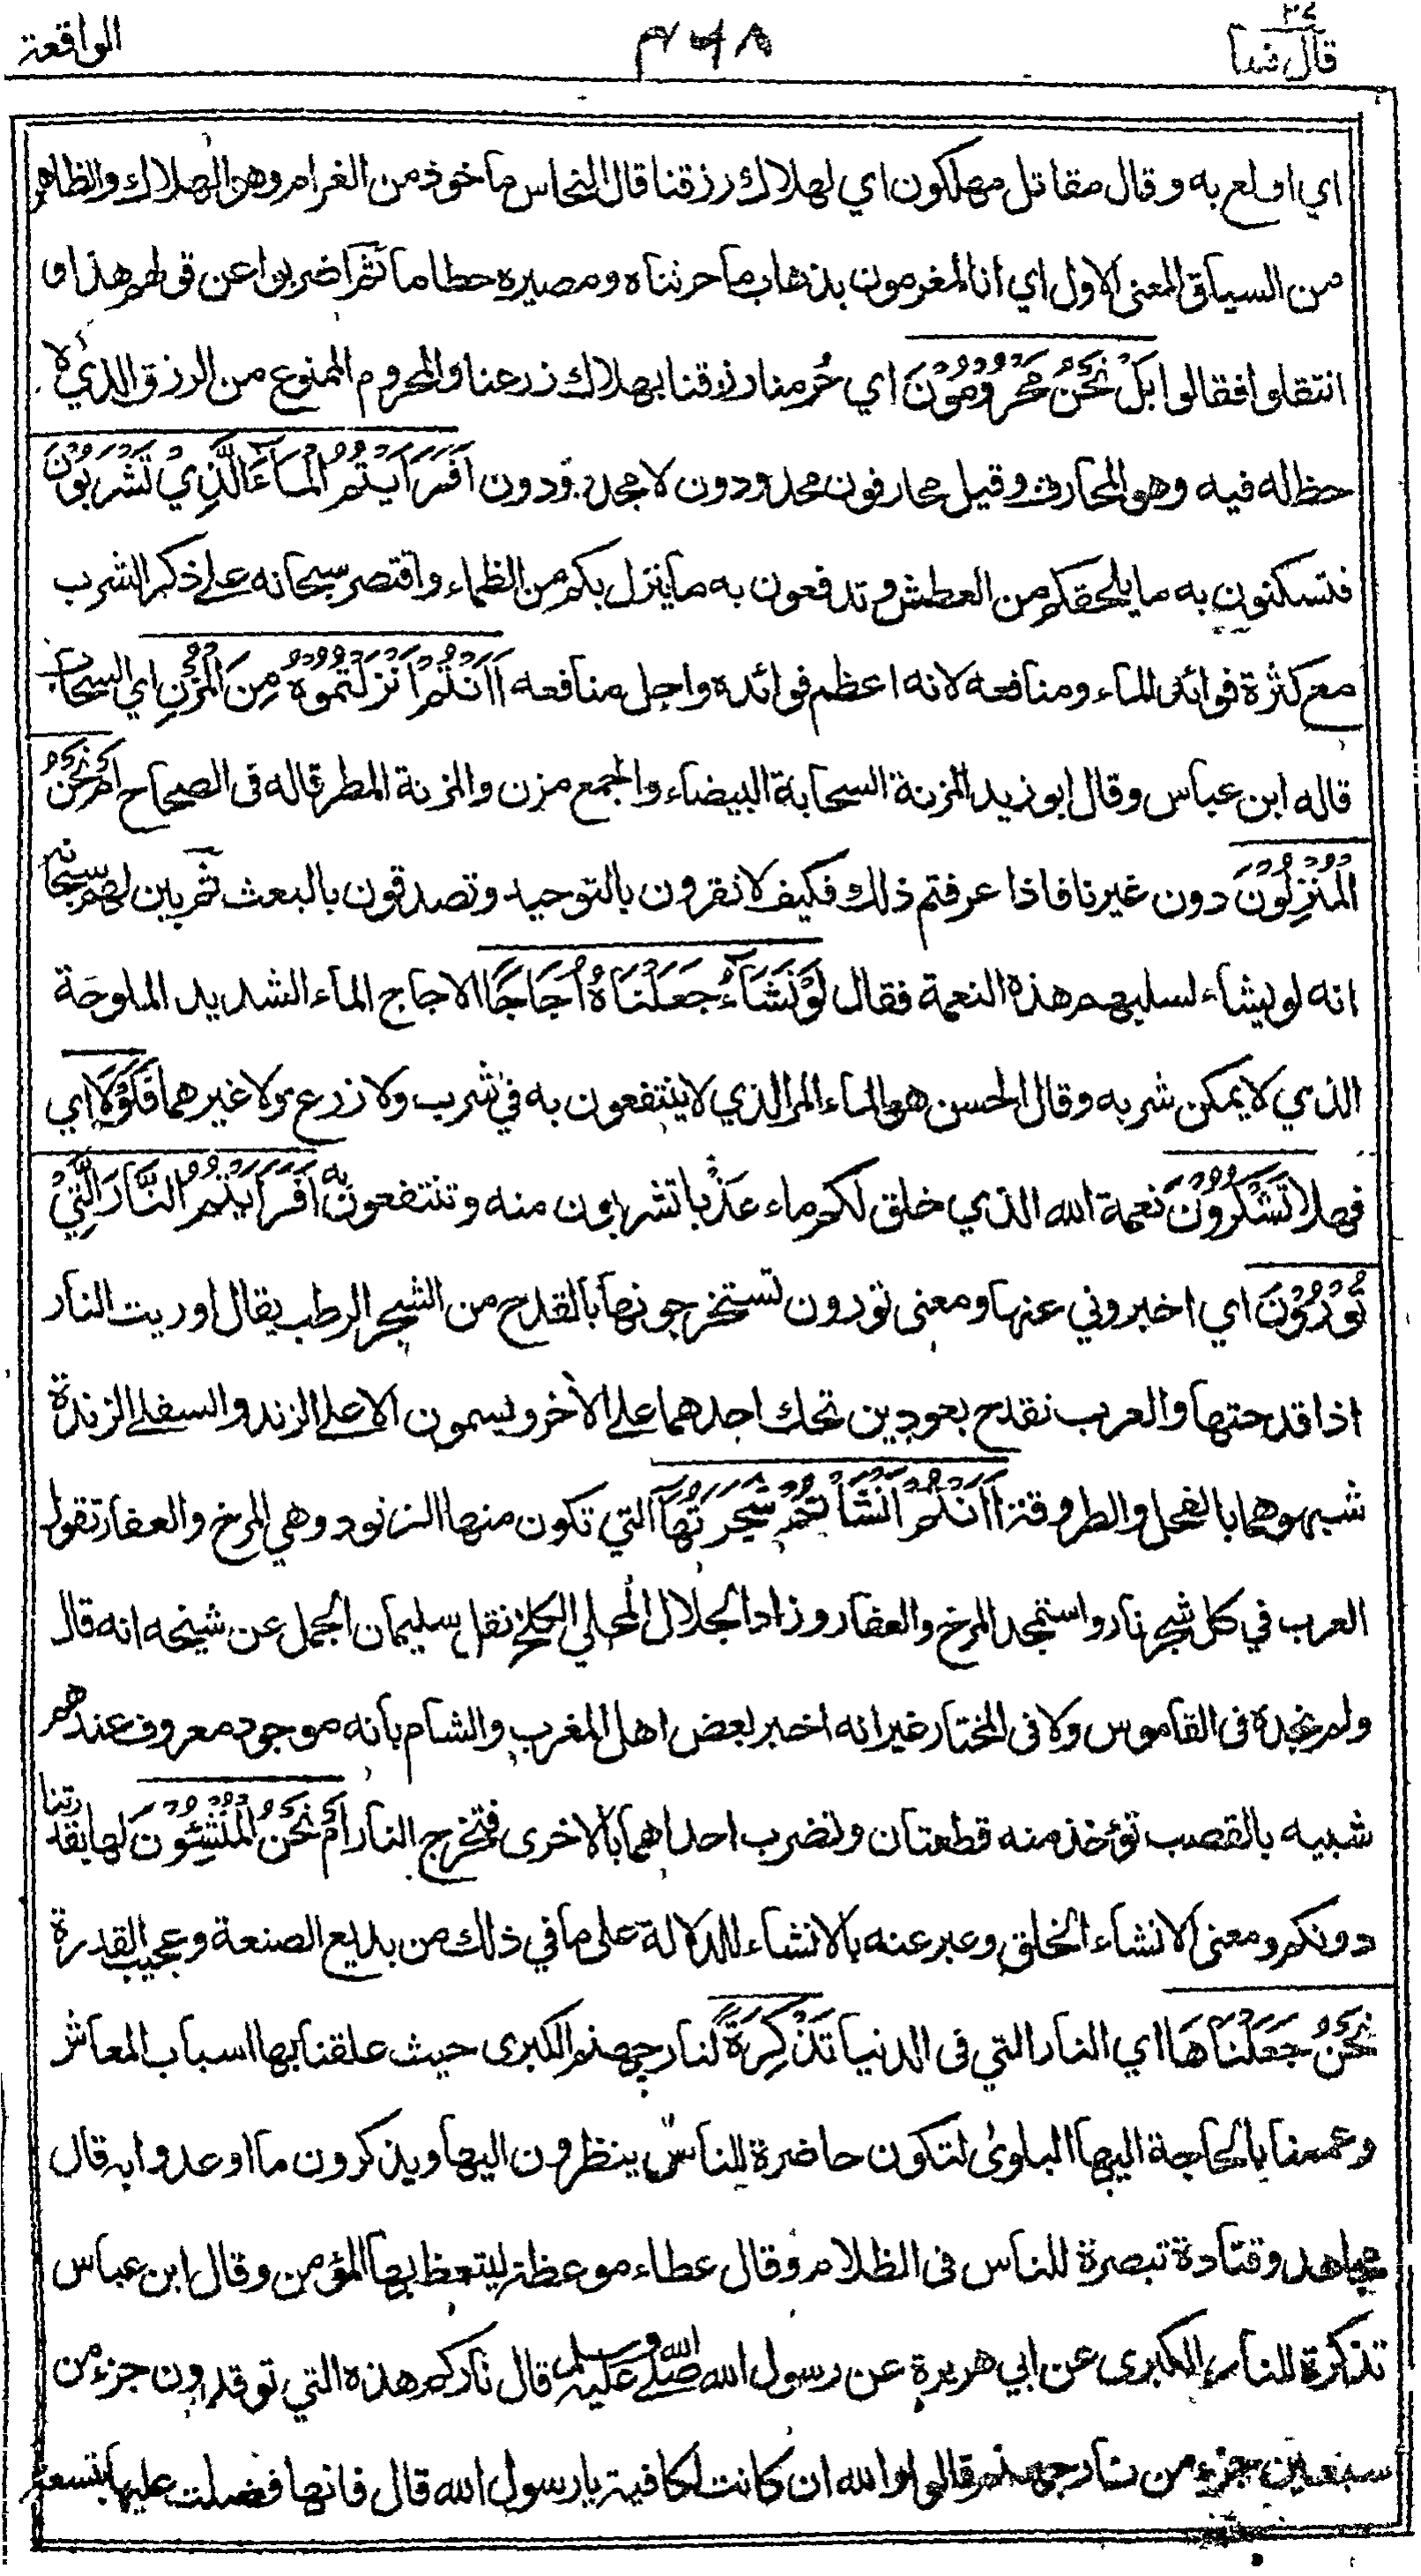 قال فما ٢٧
٢٦٨
الواقعة
اي اولع به وقال مقاتل مهلكون اي لهلاك رزقنا قال النحاس ماخوذ من الغرام وهو الهلاك والظاهر
من السياق المعنى الاول اي انا لمغرمون بذهاب ما حرثناه ومصيره حطاما ثم اضربوا عن قولهم هذا و
انتقلوا فقالوا بَلْ نَحْنُ مَحْرُوْمُوْنَ اي حُرمنا رزقنا بهلاك زرعنا والمحروم الممنوع من الرزق الذي لا
حظ له فيه وهو المحارف وقيل محارفون محدودون لا مجدودون اَفَرَاَيْتُمُ الْمَآءَ الَّذِيْ تَشْرَبُوْنَ
فتسكنون به ما يلحقكم من العطش وتدفعون به ما ينزل بكم من الظماء واقتصر سبحانه على ذكر الشرب
مع كثرة فوائد الماء ومنافعه لانه اعظم فوائده واجل منافعه ااَنْتُمْ اَنْزَلْتُمُوْهُ مِنَ الْمُزْنِ اي السحاب
قاله ابن عباس وقال ابو زيد المزنة السحابة البيضاء والجمع مزن والمزنة المطر قاله في الصحاح اَمْ نَحْنُ
الْمُنْزِلُوْنَ دون غيرنا فاذا عرفتم ذلك فكيف لا تقرون بالتوحيد وتصدقون بالبعث ثم بين لهم سبحانه
انه لو يشاء لسلبهم هذه النعمة فقال لَوْنَشَآءُ جَعَلْنَاهُ اُجَاجًا الاجاج الماء الشديد الملوحة
الذي لا يمكن شربه وقال الحسن هو الماء المر الذي لا ينتفعون به في شرب ولا زرع ولا غيرهما فَلَوْلَا اي
فهلا تَشْكُرُوْنَ نعمة الله الذي خلق لكم ماء عذبا تشربون منه وتنتفعون به اَفَرَاَيْتُمُ النَّارَ الَّتِيْ
تُوْرُوْنَ اي اخبروني عنها ومعنى تورون تستخرجونها بالقدح من الشجر الرطب يقال اوريت النار
اذا قدحتها والعرب تقدح بعودين تحك احدهما على الاخر ويسمون الاعلى الزند والسفلى الزندة
شبهوهما بالفحل والطروقة ااَنْتُمْ اَنْشَاْتُمْ شَجَرَتَهَا التي تكون منها الزنود وهي المرخ والعفار تقول
العرب في كل شجر نار واستمجد المرخ والعفار وزاد الجلال المحلي الكلخ نقل سليمان الجمل عن شيخه انه قال
ولم نجده في القاموس ولا في المختار غير انه اخبر بعض اهل المغرب والشام بانه موجود معروف عندهم
شبيه بالقصب تؤخذ منه قطعتان وتضرب احداهما بالاخرى فتخرج النار اَمْ نَحْنُ الْمُنْشِئُوْنَ لها بقدرتنا
دونكم ومعنى الانشاء الخلق وعبر عنه بالانشاء للدلالة على ما في ذلك من بديع الصنعة وعجيب القدرة
نَحْنُ جَعَلْنَاهَا اي النار التي في الدنيا تَذْكِرَةً لنار جهنم الكبرى حيث علقنا بها اسباب المعاش
وعممنا بالحاجة اليها البلوى لتكون حاضرة للناس ينظرون اليها ويذكرون ما اوعدوا به قال
مجاهد وقتادة تبصرة للناس في الظلام وقال عطاء موعظة ليتعظ بها المؤمن وقال ابن عباس
تذكرة للنار الكبرى عن ابي هريرة عن رسول الله صلى الله عليه وسلم قال ناركم هذه التي توقدون جزء من
سبعين جزء من نار جهنم قالوا والله ان كانت لكافية يا رسول الله قال فانها فضلت عليها بتسعة